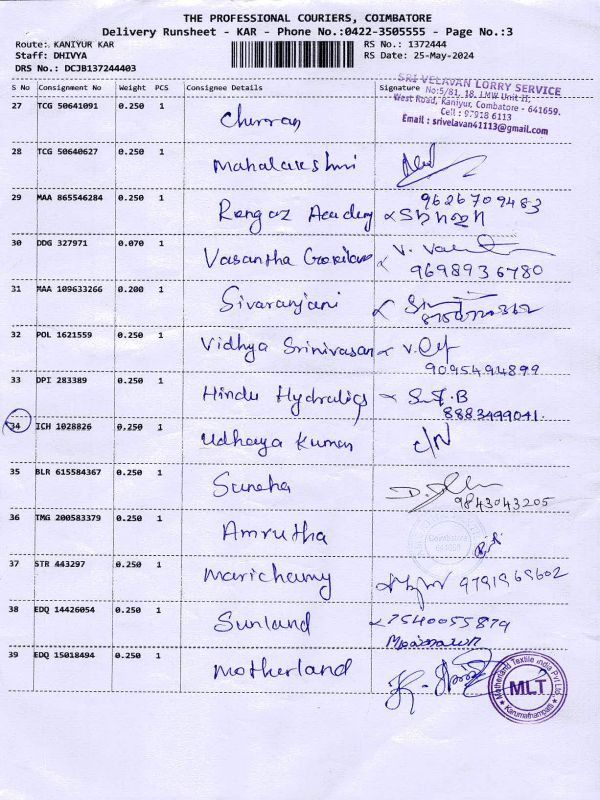 THE PROFESSIONAL COURIERS, COIMBATORE
Delivery Runsheet - KAR - Phone No.:0422-3505555 - Page No.:3
Route: KANIYUR KAR RS No.: 1372444
Staff: DHIVYA RS Date: 25-May-2024
DRS No.: DCJB137244403
S No Consignment No Weight PCS Consignee Details Signature
SRI VELAVAN LORRY SERVICE
No:5/81, 18, LMW Unit II,
West Road, Kaniyur, Combatore - 641659.
Cell : 97918 6113
Email : srivelavan41113@gmail.com
27 TCG 50641091 0.250 1
28 TCG 50640627 0.250 1 Mahalakshmi
29 MAA 865546284 0.250 1 Rangaz Academy 9626709483
30 DDG 327971 0.070 1 Vasantha V.
9698936780
31 MAA 109633266 0.200 1 Sivaranjani
32 POL 1621559 0.250 1 Vidhya Srinivasan
9095494899
33 DPI 283389 0.250 1 Hindu Hydralics S.B
8883499041.
34 ICH 1028826 0.250 1 Udhaya Kumar C/N
35 BLR 615584367 0.250 1 Suneha
9843043205
36 TMG 200583379 0.250 1 Amrutha
Coimbatore
37 STR 443297 0.250 1 Marichamy 9791968602
38 EDQ 14426054 0.250 1 Sunland 7540055879
39 EDQ 15018494 0.250 1 Motherland
Motherland Textile India Pvt Ltd.
MLT
Karumathampatti